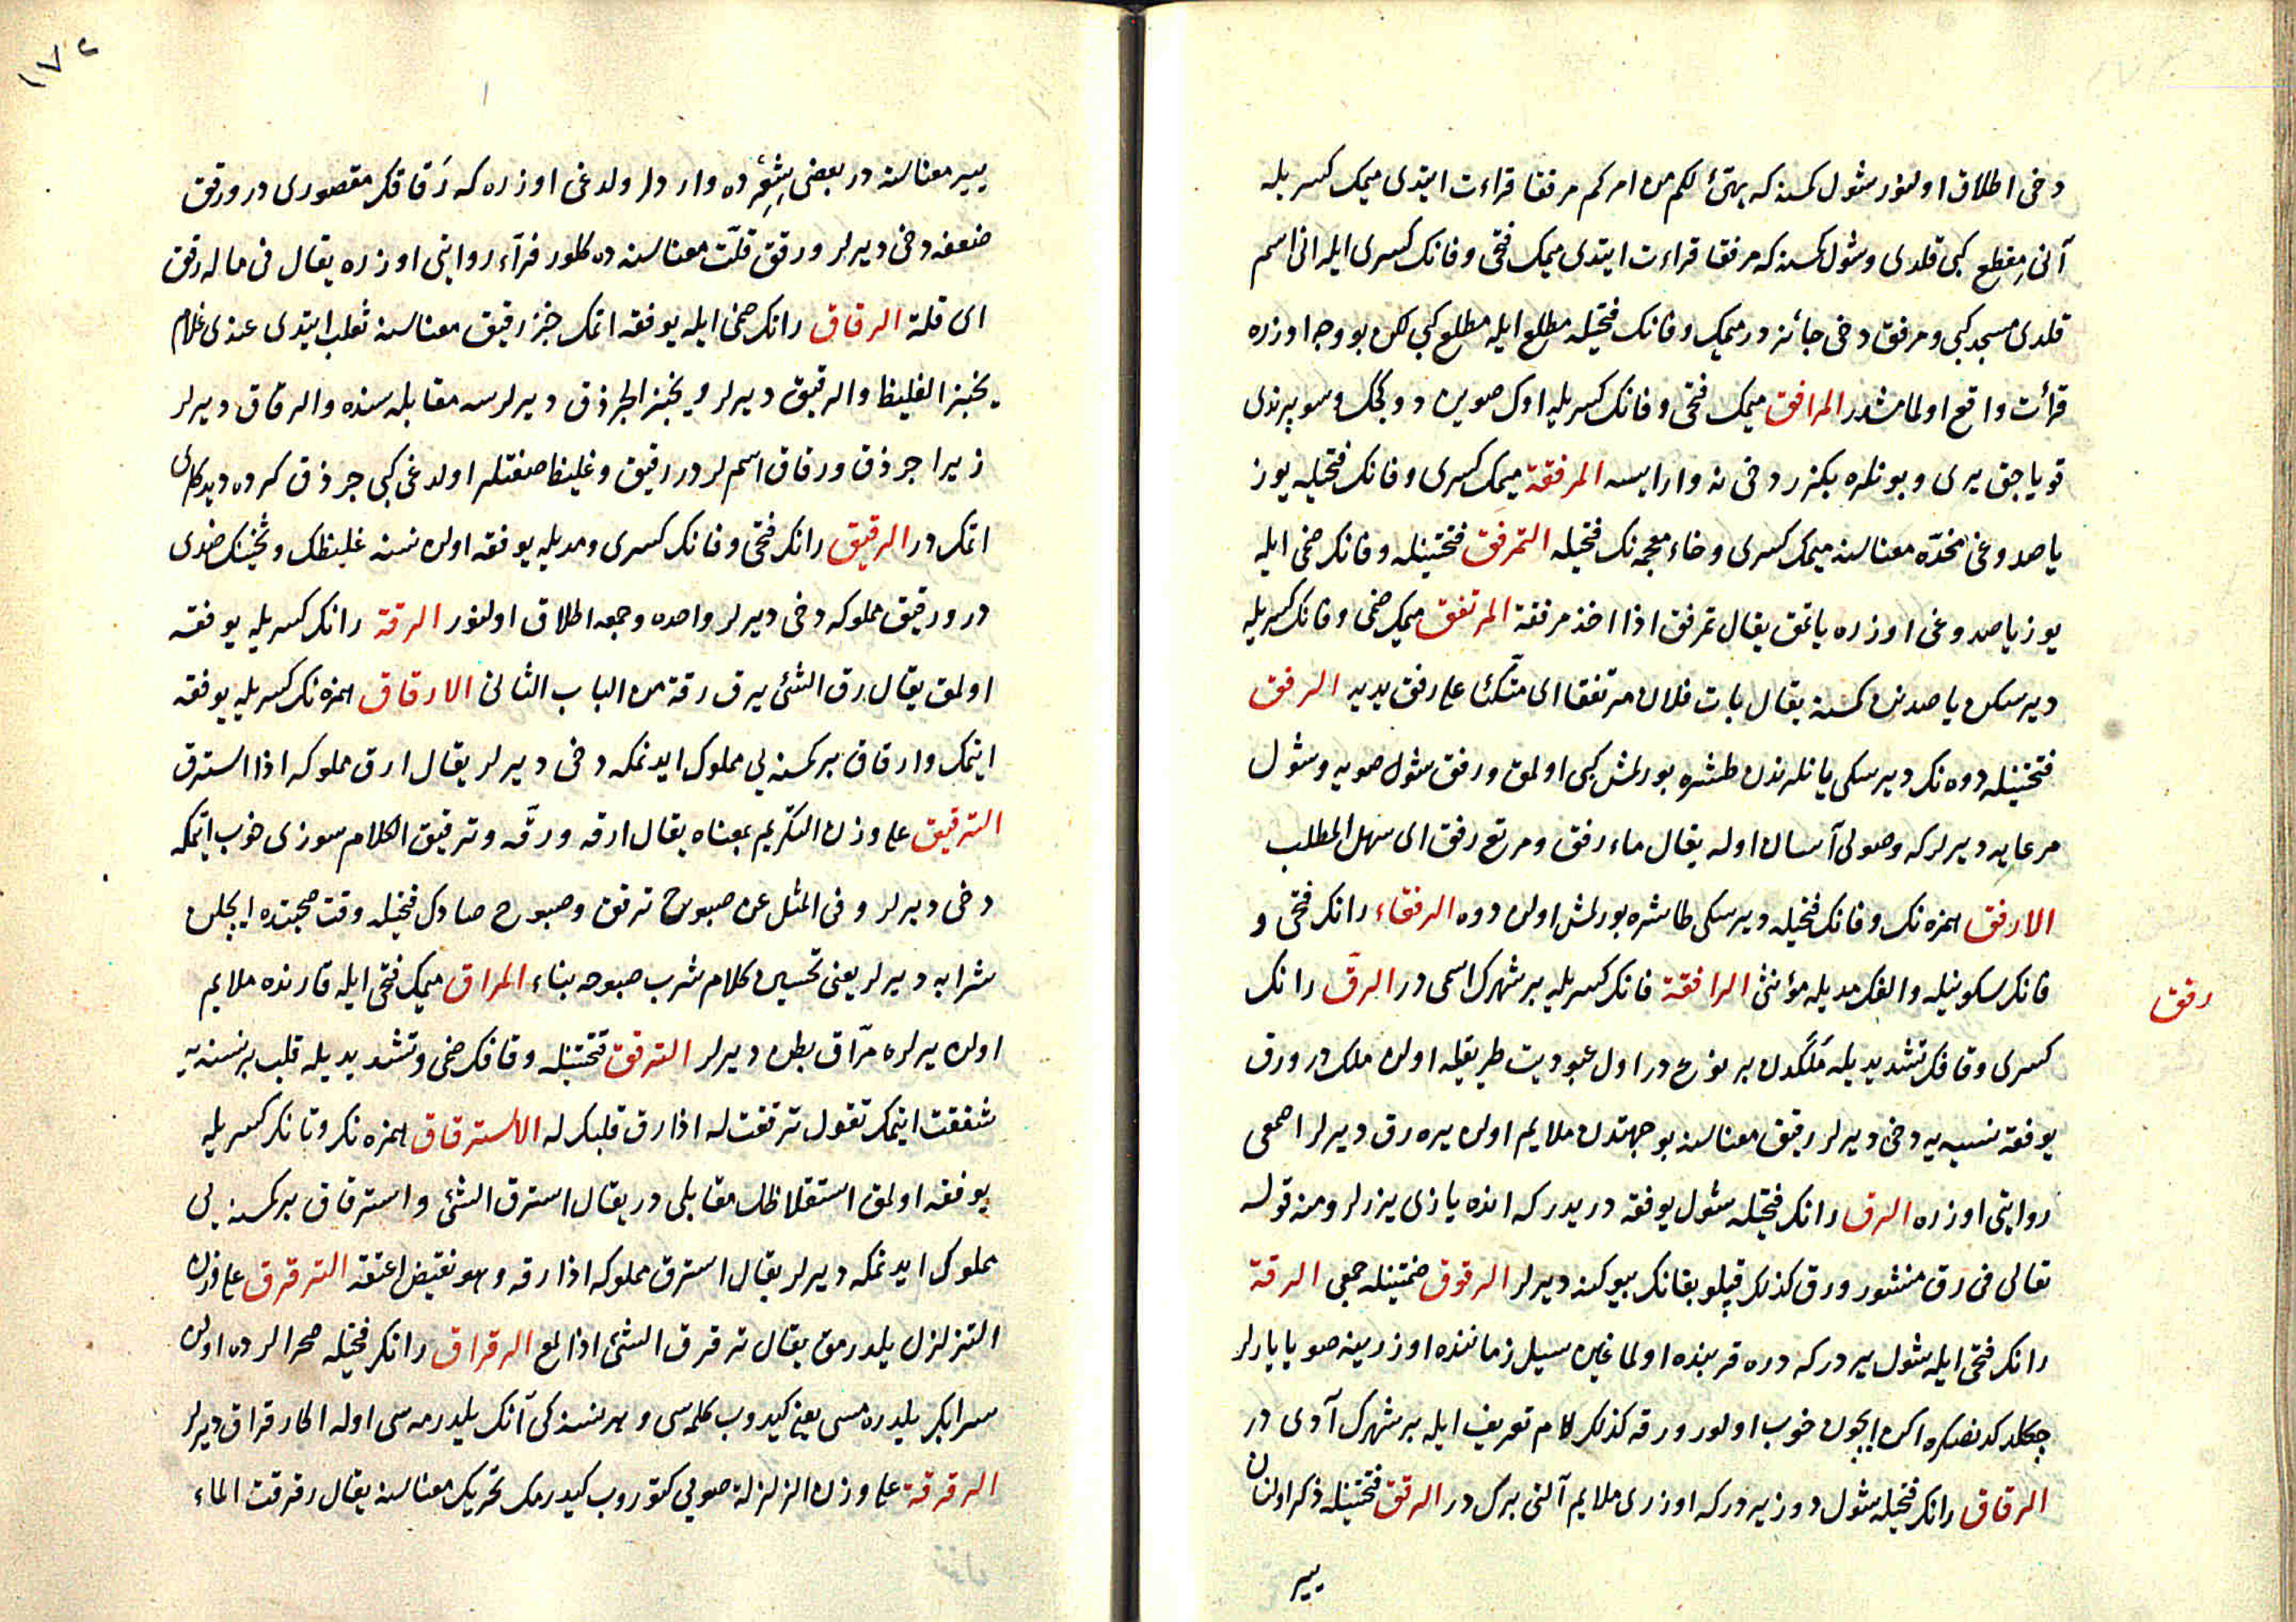 دخی اطلاق اولنور شول کمسنه که یهیئ لکم من امرکم مرفقا قراءت ایتدی میمک کسریله
آنی مقطع کبی قلدی وشول کمسنه که مرفقا قراءت ایتدی میمک فتحی وفانک کسری ایله انی اسم
قلدی مسجد کبی ومرفق دخی جائز در میمک وفانک فتحیله مطلع ایله مطلع کبی لکن بو وجه اوزره
قرأت واقع اولمامشدر المرافق میمک فتحی وفانک کسریله اوک صوین دوکجک وسوپرندی
قویاجق یری وبونلره بکزر دخی نه وارایسه المرفقة میمک کسری وفانک فتحیله یوز
یاصدوغی مخدّه معناسنه میمک کسری وخاء معجمه نک فتحیله التمرفق فتحتینله وفانک ضمی ایله
یوز یاصدوغی اوزره یاتمق یقال تمرفق اذا اخذ مرفقة المرتفق میمک ضمی وفانک کسریله
دیرسکن یاصدنن کمسنه یقال بات فلان مرتفقا ای متّکئا علی رفق یدیه الرفق
فتحتینله دوه نک دیرسکی یانلرندن طشره بورلمش کبی اولمق ورفق شول صویه وشول
مرعایه دیرلر که وصولی آسان اوله یقال ماء رفق ومرتع رفق ای سهل المطلب
الارفق همزه نک وفانک فتحیله دیرسکی طاشره بورلمش اولن دوه الرفقاء رانک فتحی و
فانک سکونیله والفک مدیله مؤنثی الرافقة فانک کسریله بر شهرک اسمی در الرقّ رانک
رفق
کسری وقافک تشدیدیله مُلکدن بر نوع در اول عبودیت طریقیله اولن ملک در ورق
یوفقه نسنه یه دخی دیرلر رقیق معناسنه بو جهتدن ملایم اولن یره رق دیرلر اصمعی
روایتی اوزره الرق رانک فتحیله شول یوفقه دریدر که انده یازی یزرلر ومنه قوله
تعالی فی رق منشور ورق کذلک قپلوبقانک بیوکنه دیرلر الرقوق ضمتینله جمعی الرقة
رانک فتحی ایله شول یردر که دره قربنده اولماغین سیل زماننده اوزرینه صو یایارلر
چکلدکدنصکره اکن ایچون خوب اولور ورقه کذلک لام تعریف ایله بر شهرک آدی در
الرقاق رانک فتحیله شول دوز یردر که اوزری ملایم آلتی برک در الرقق فتحتینله ذکر اولنن
ییر
١٧٢
ییر معناسنه در بعض شِعرده وارد در ولدغی اوزره که رَقاقک مقصوری در ورقق
ضعفه دخی دیرلر ورقق قلّت معناسنه ده کلور فرآء روایتی اوزره یقال فی ماله رقق
ای قلة الرقاق رانک ضمی ایله یوفقه اتمک خبز رقیق معناسنه ثعلب ایتدی عندی غلام
یخبز الغلیظ والرقیق دیرلر ویخبز الجرذق دیرلرسه مقابله سنده والرقاق دیرلر
زیرا جرذق ورقاق اسملر در رقیق وغلیظ صفتلر اولدغی کبی جرذق کرده دیدکلری
اتمک در الرقیق رانک فتحی وقافک کسری ومدیله یوفقه اولن نسنه غلیظک وثخینک ضدی
در ورقیق مملوکه دخی دیرلر واحده وجمعه اطلاق اولنور الرقة رانک کسریله یوفقه
اولمق یقال رق الشئ یرق رقة من الباب الثانی الارقاق همزه نک کسریله یوفقه
ایتمک وارقاق بر کمسنه یی مملوک ایدنمکه دخی دیرلر یقال ارق مملوکه اذا استرق
الترقیق علی وزن التکریم بمعناه یقال ارقه ورقّه وترقیق الکلام سوزی خوب ایتمکه
دخی دیرلر وفی المثل عن صبوح ترقق وصبوح صادک فتحیله وقت صحبتده ایچلن
شرابه دیرلر یعنی تحسین کلام شرب صبوحه بناء المراق میمک فتحی ایله قارنده ملایم
اولن یرلره مرّاق بطن دیرلر الترقق فتحتینله وقافک ضمی وتشدیدیله قلب بر نسنه یه
شفقت ایتمک تقول ترققت له اذا رق قلبک له الاسترقاق همزه نک وتانک کسریله
یوفقه اولمق استغلاظک مقابلی در یقال استرق الشئ واسترقاق بر کمسنه یی
مملوک ایدنمکه دیرلر یقال استرق مملوکه اذا رقه وهو نقیض اعتقه الترقرق علی وزن
التزلزل یلدرمق یقال ترقرق الشئ اذا لمع الرقراق رانک فتحیله صحرالرده اولن
سرابک یلدره مسی یعنی کیدوب کلمه سی وهر نسنه کی آنک یلدرمه سی اوله اکا رقراق دیرلر
الرقرقة علی وزن الزلزلة صویی کتوروب کیدرمک تحریک معناسنه یقال رقرقت الماء